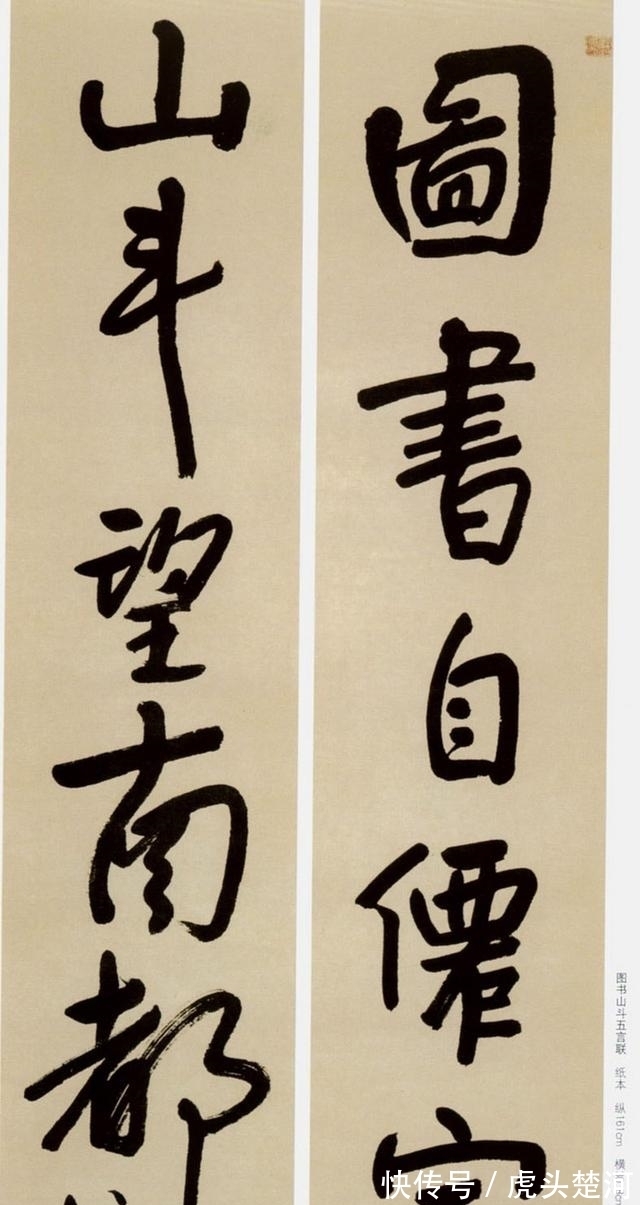 圖書自僊
山斗望南都
图书山斗五言联 纸本 纵161cm 横
快传号 / 虎头楚河